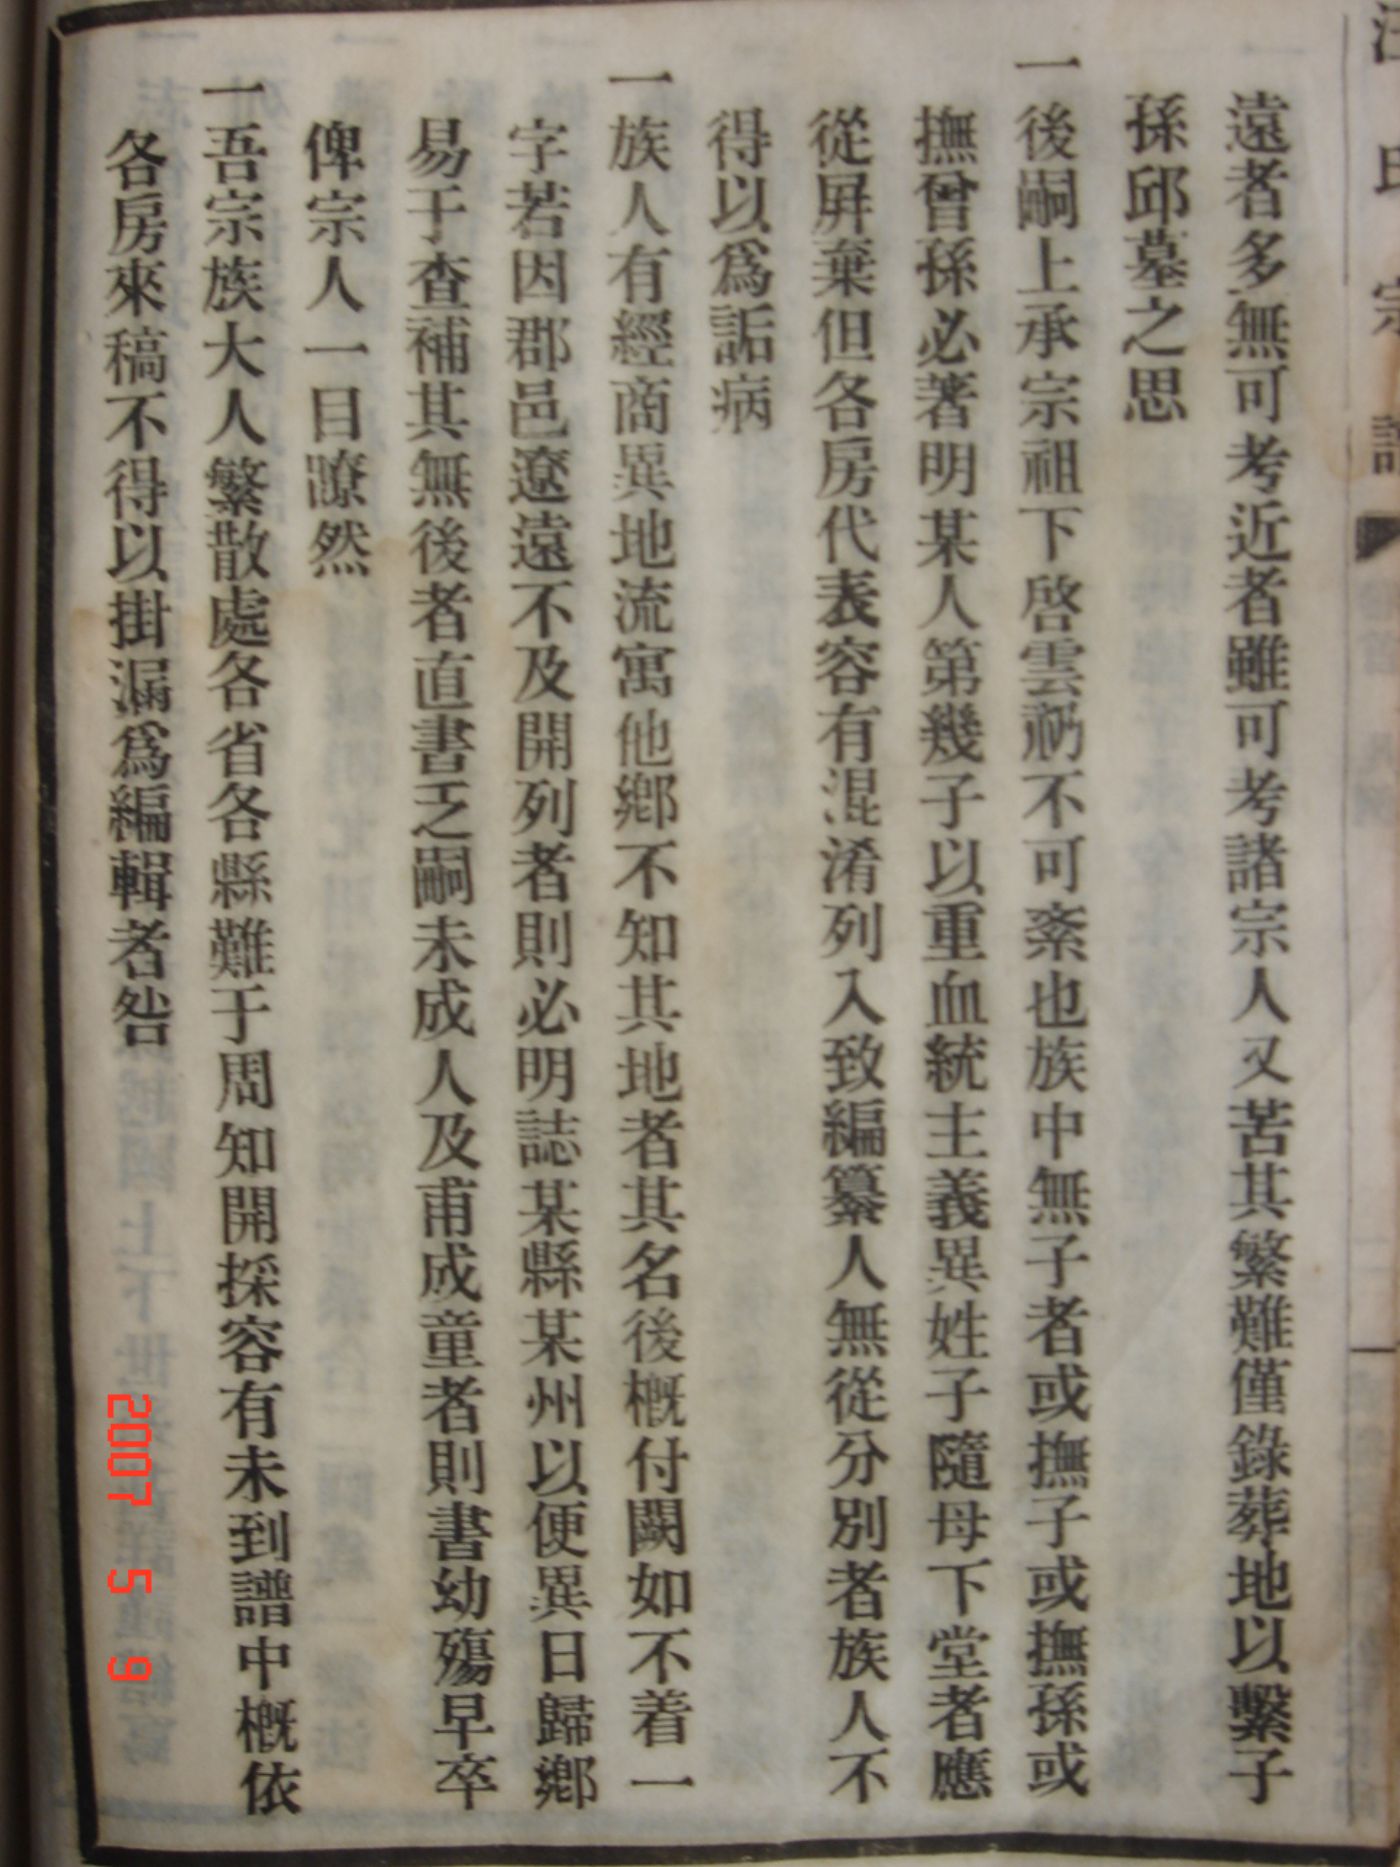 汪氏宗譜
遠者多無可考近者雖可考諸宗人又苦其繁難僅錄葬地以繫子
孫邱墓之思
一後嗣上承宗祖下啓雲礽不可紊也族中無子者或撫子或撫孫或
撫曾孫必著明某人第幾子以重血統主義異姓子隨母下堂者應
從屛棄但各房代表容有混淆列入致編纂人無從分別者族人不
得以爲詬病
一族人有經商異地流寓他鄕不知其地者其名後槪付闕如不着一
字若因郡邑遼遠不及開列者則必明誌某縣某州以便異日歸鄕
易于查補其無後者直書乏嗣未成人及甫成童者則書幼殤早卒
俾宗人一目瞭然
一吾宗族大人繁散處各省各縣難于周知開採容有未到譜中槪依
各房來稿不得以掛漏爲編輯者咎
2007 5 9